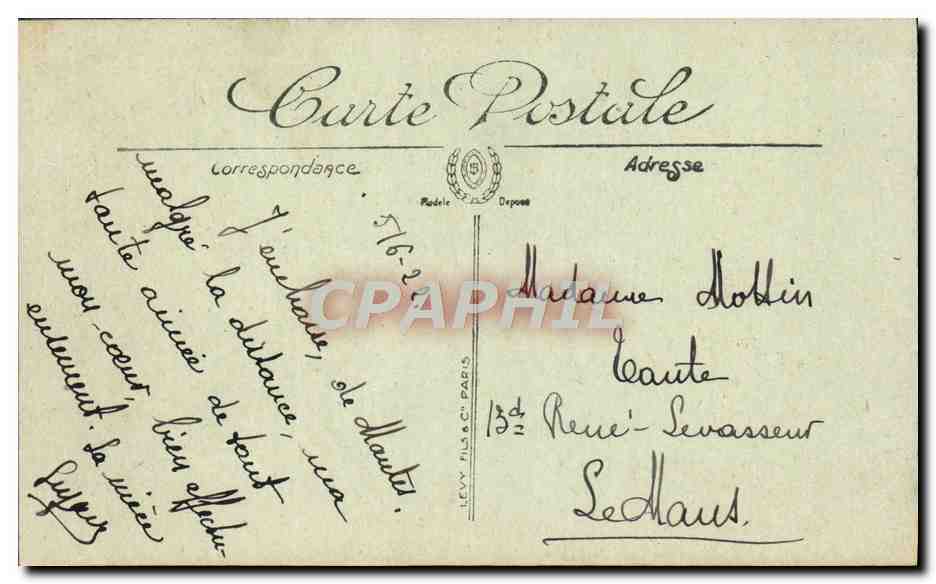 Carte Postale
Correspondance
Adresse
Modele Deposé
5/6-22
J'embrasse, de Mantes,
malgré la distance, ma
tante aimée de tout
mon cœur, bien affectu-
eusement. Sa nièce
Madame Mottin
Tante
Bd René-Levasseur
Le Mans.
LEVY FILS & Cie PARIS
CPAPHIL